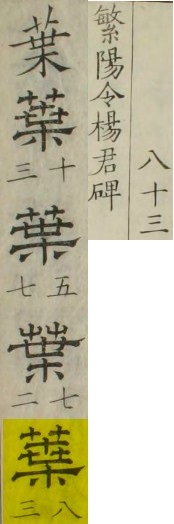 八十三
繁陽令楊君碑
葉
葉
十三
葉
五七
葉
七二
葉
八三